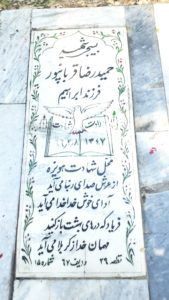 بسیجی شهید
حمیدرضا قربانپور
فرزند ابراهیم
۱۳۱۷
محل شهادت هویزه
از عرش صدای ربنا می‌آید
آوای خوش خدا خدا می‌آید
فریاد که درهای بهشت باز کنید
مهمان خدا ز کربلا می‌آید
قطعه ۲۹ ردیف ۶۷ شماره ۱۵